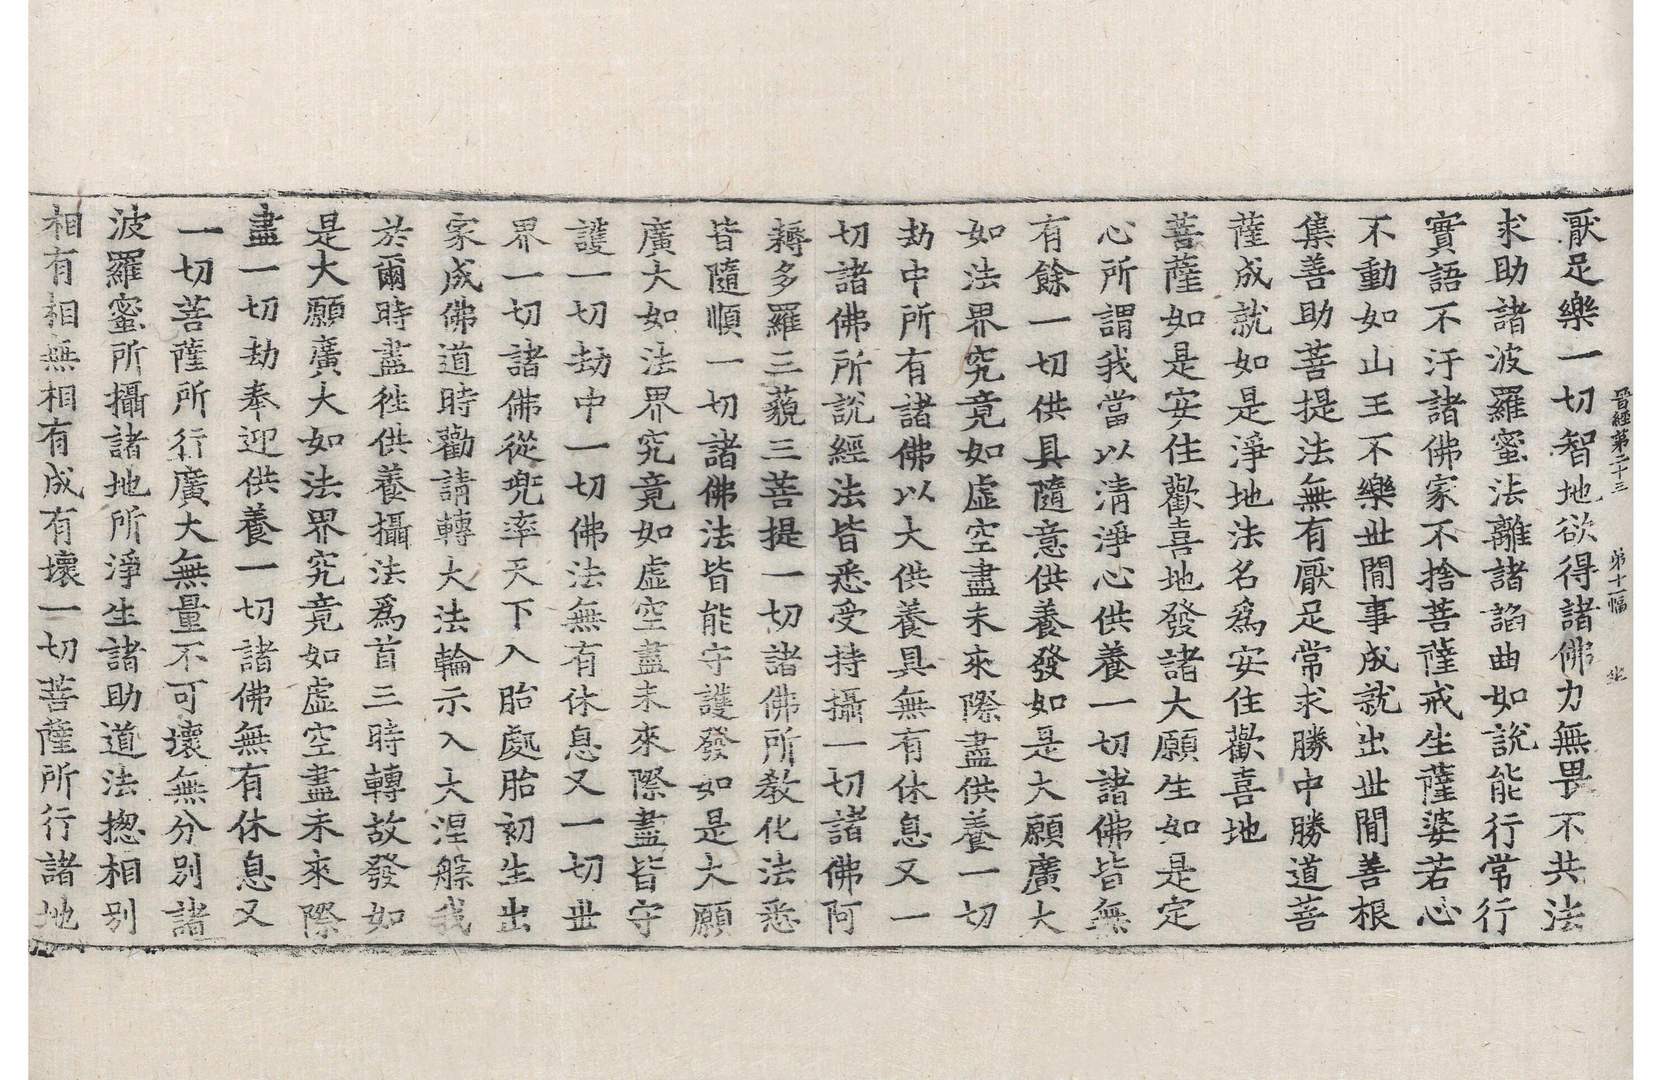 晉經第二十三 第十一幅 坐
厭足樂一切智地欲得諸佛力無畏不共法
求助諸波羅蜜法離諸諂曲如說能行常行
實語不汙諸佛家不捨菩薩戒生薩婆若心
不動如山王不樂世間事成就出世間善根
集善助菩提法無有厭足常求勝中勝道菩
薩成就如是淨地法名爲安住歡喜地
菩薩如是安住歡喜地發諸大願生如是定
心所謂我當以清淨心供養一切諸佛皆無
有餘一切供具隨意供養發如是大願廣大
如法界究竟如虛空盡未來際盡供養一切
劫中所有諸佛以大供養具無有休息又一
切諸佛所說經法皆悉受持攝一切諸佛阿
耨多羅三藐三菩提一切諸佛所教化法悉
皆隨順一切諸佛法皆能守護發如是大願
廣大如法界究竟如虛空盡未來際盡皆守
護一切劫中一切佛法無有休息又一切世
界一切諸佛從兜率天下入胎處胎初生出
家成佛道時勸請轉大法輪示入大涅槃我
於爾時盡往供養攝法爲首三時轉故發如
是大願廣大如法界究竟如虛空盡未來際
盡一切劫奉迎供養一切諸佛無有休息又
一切菩薩所行廣大無量不可壞無分別諸
波羅蜜所攝諸地所淨生諸助道法摠相別
相有相無相有成有壞一切菩薩所行諸地